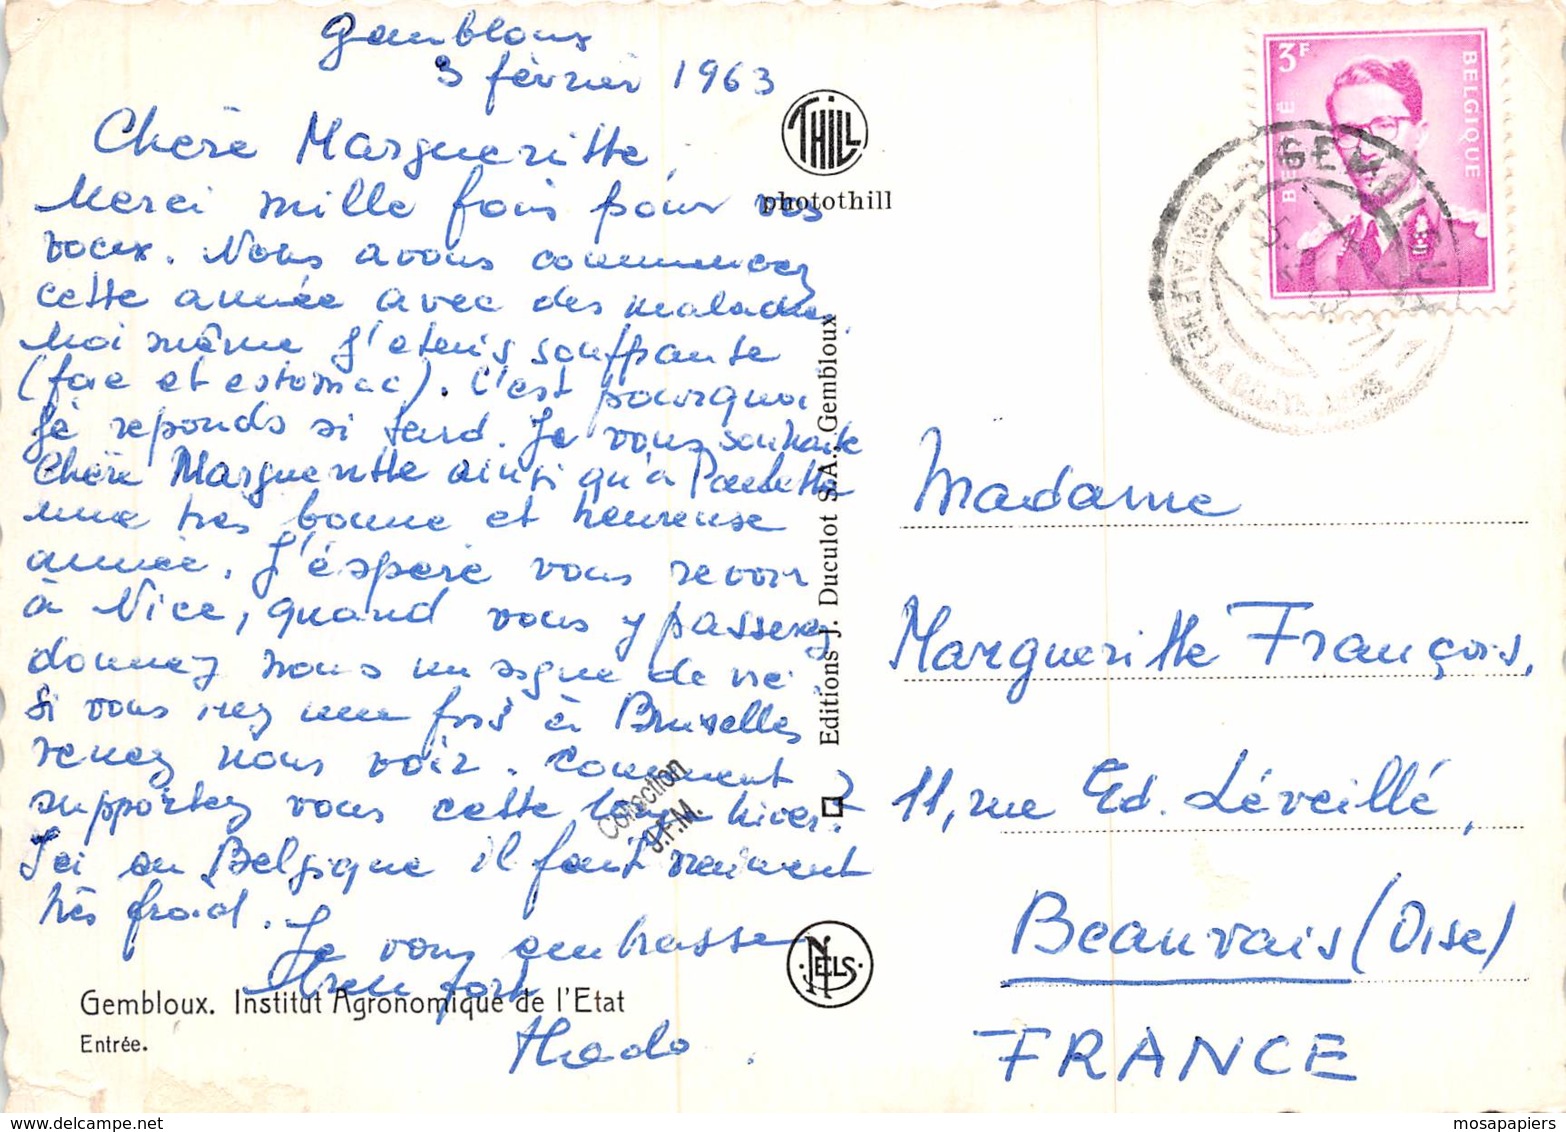 Gembloux
3 février 1963
Chère Margueritte,
Merci mille fois pour vos
voeux. Nous avons commencez
cette année avec des maladies.
Moi même j'etais souffrante
(foie et estomac). C'est pourquoi
je reponds si tard. Je vous souhaite
Chère Margueritte ainsi qu'à Paulette
une très bonne et heureuse
année. J'éspère vous revoir
à Nice, quand vous y passerez
donnez nous un signe de vie.
Si vous irez une fois à Bruxelles
venez nous voir. Comment
supportez vous cette hiver?
Ici en Belgique il fait vraiment
très froid.
Je vous embrasse
bien fort
THILL
photothill
Editions J. Duculot S.A., Gembloux
NELS
Collection
J.F.M.
Gembloux. Institut Agronomique de l'Etat
Entrée.
3F
BELGIQUE
BELGIË
GEMBLOUX
Madame
Margueritte François,
11, rue Ed. Léveillé,
Beauvais (Oise)
FRANCE
mosapapiers
www.delcampe.net